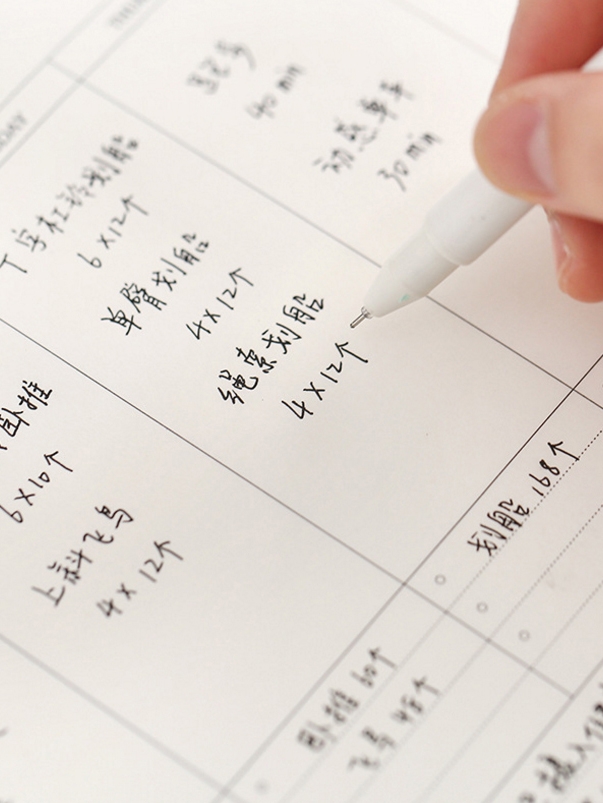 40 min
动感单车
30 min
T字杠铃划船
6×12个
单臂划船
4×12个
绳索划船
4×12个
划船 168个
卧推
6×10个
上斜飞鸟
4×12个
卧推 60个
飞鸟 48个